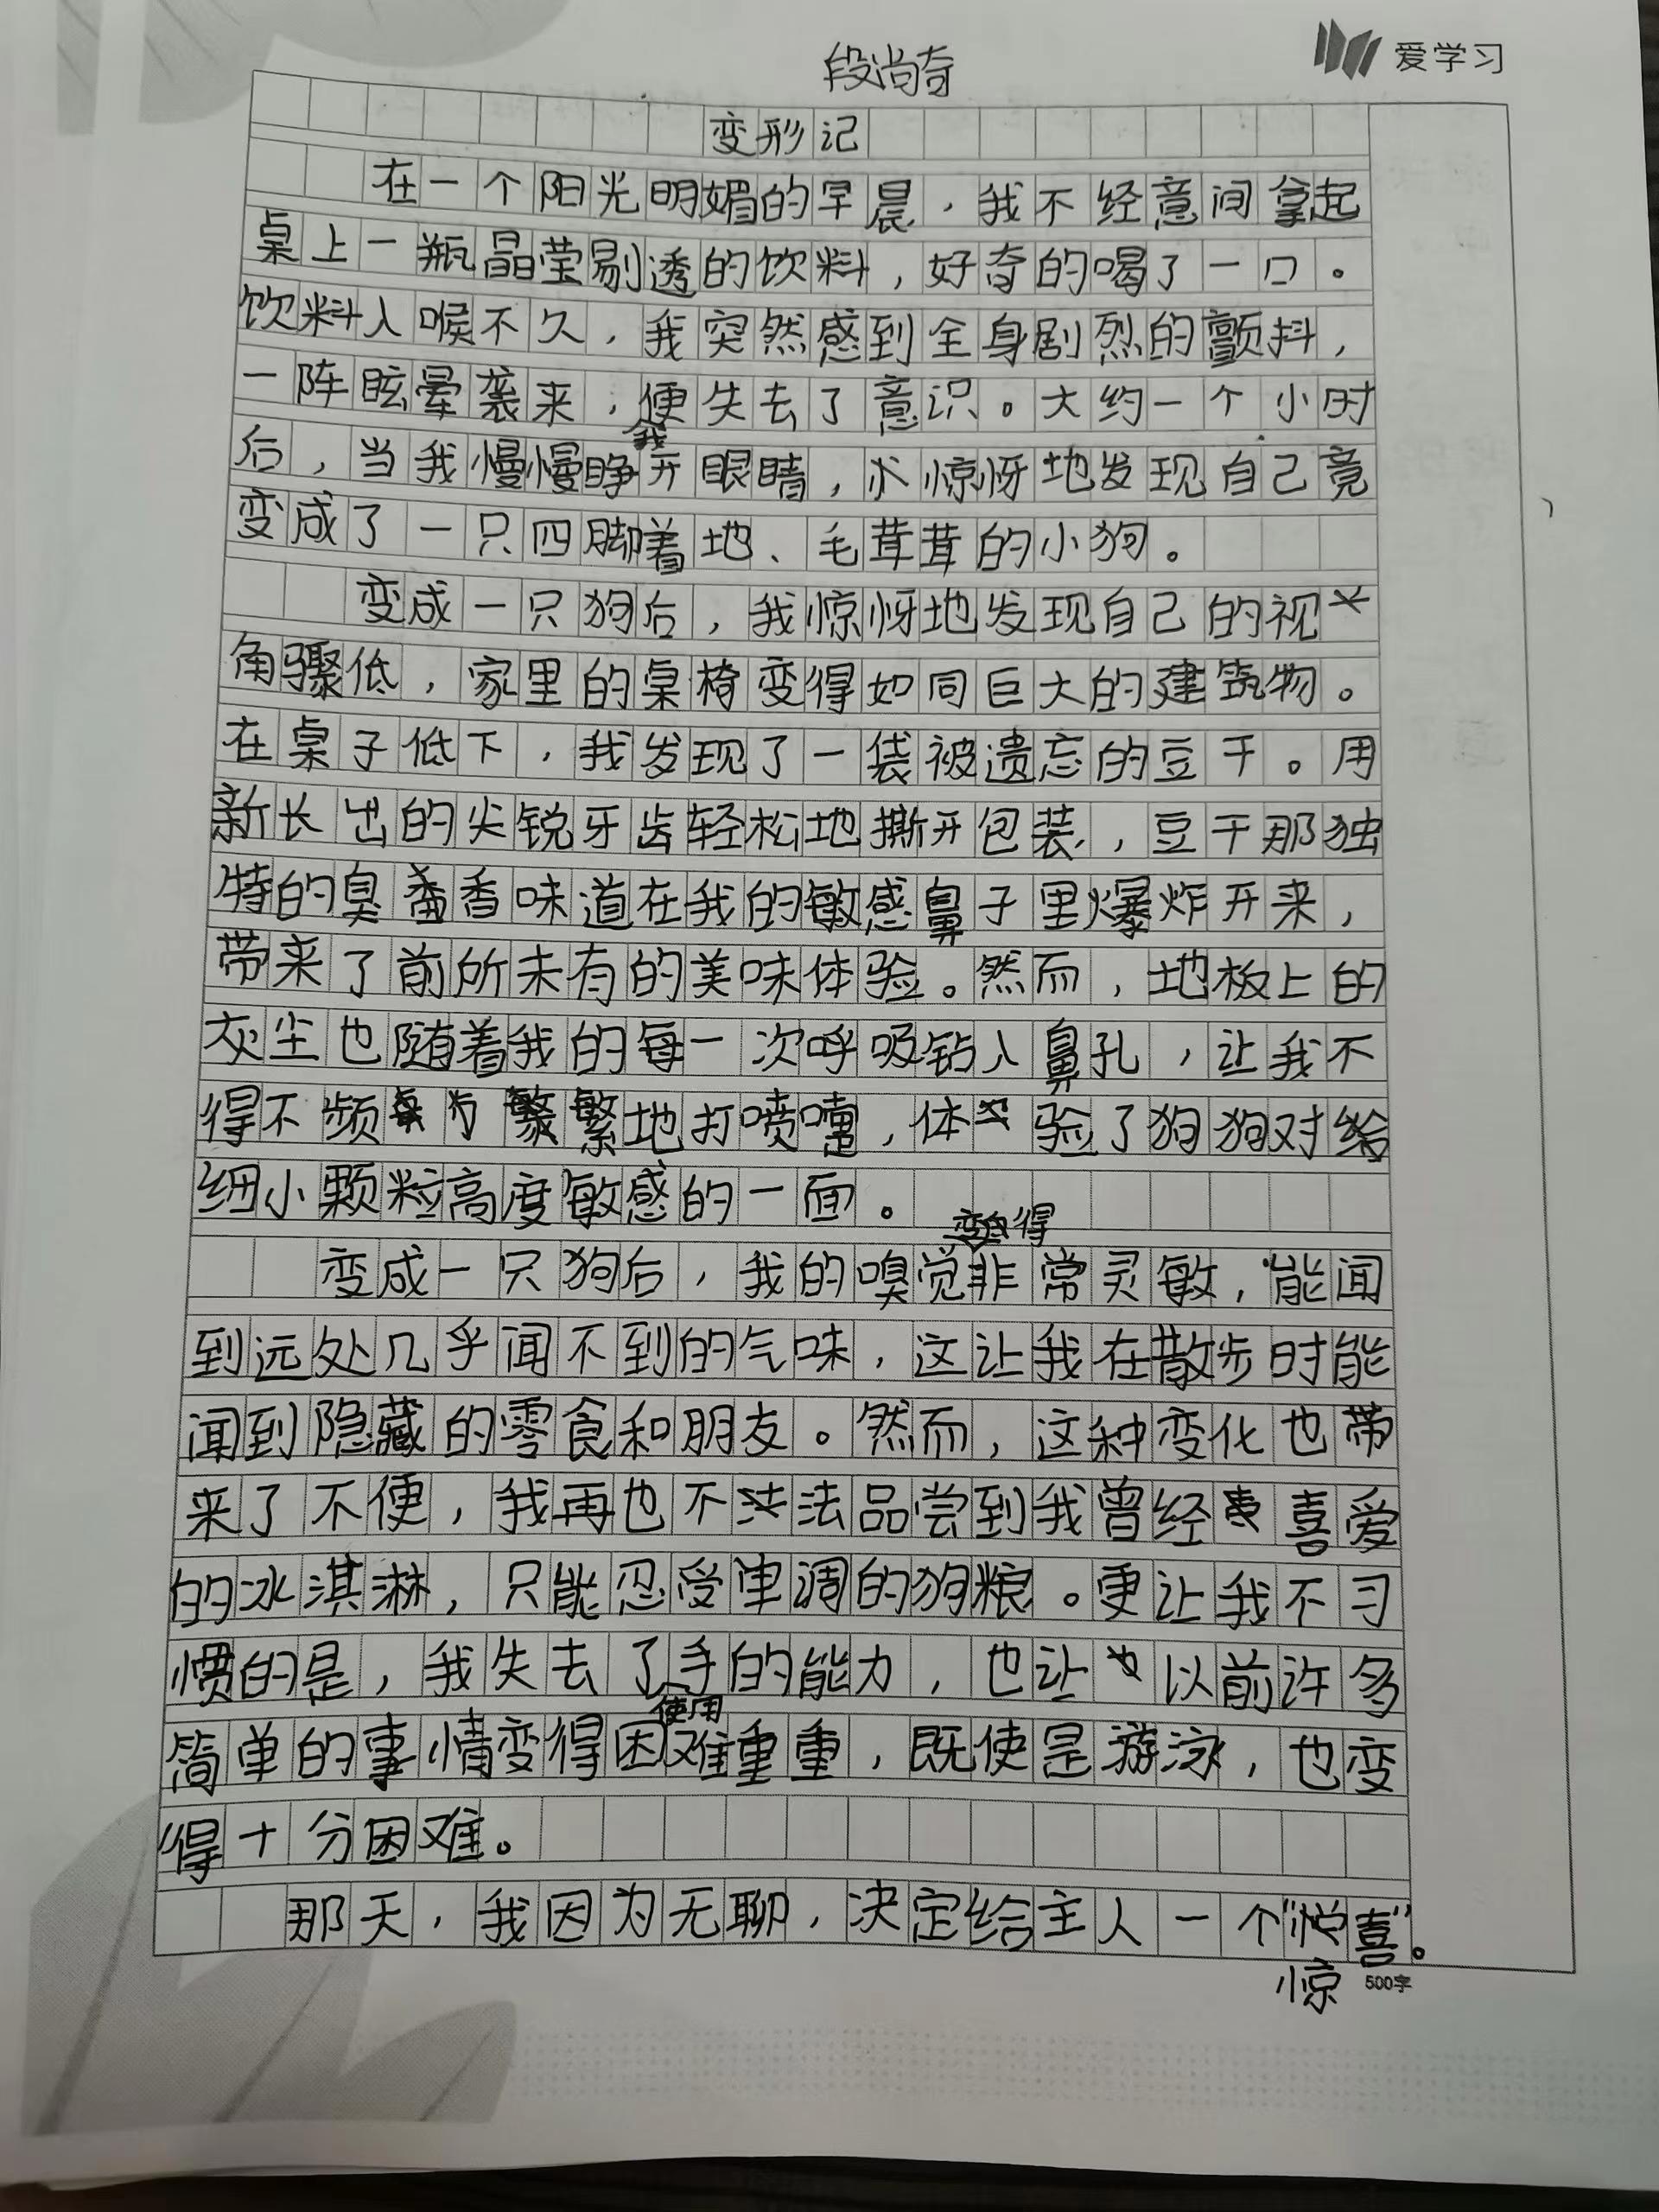 段尚奇
爱学习
变形记
在一个阳光明媚的早晨，我不经意间拿起
桌上一瓶晶莹剔透的饮料，好奇的喝了一口。
饮料入喉不久，我突然感到全身剧烈的颤抖，
一阵眩晕袭来，便失去了意识。大约一个小时
我
后，当我慢慢睁开眼睛，惊讶地发现自己竟
变成了一只四脚着地、毛茸茸的小狗。
变成一只狗后，我惊讶地发现自己的视
角骤低，家里的桌椅变得如同巨大的建筑物。
在桌子低下，我发现了一袋被遗忘的豆干。用
新长出的尖锐牙齿轻松地撕开包装，豆干那独
特的臭香味道在我的敏感鼻子里爆炸开来，
带来了前所未有的美味体验。然而，地板上的
灰尘也随着我的每一次呼吸钻入鼻孔，让我不
得不频繁地打喷嚏，体验了狗狗对
细小颗粒高度敏感的一面。
变得
变成一只狗后，我的嗅觉非常灵敏，能闻
到远处几乎闻不到的气味，这让我在散步时能
闻到隐藏的零食和朋友。然而，这种变化也带
来了不便，我再也不法品尝到我曾经喜爱
的冰淇淋，只能忍受单调的狗粮。更让我不习
惯的是，我失去了手的能力，也让以前许多
使用
简单的事情变得困难重重，既使是游泳，也变
得十分困难。
那天，我因为无聊，决定给主人一个“喜”。
惊
500字